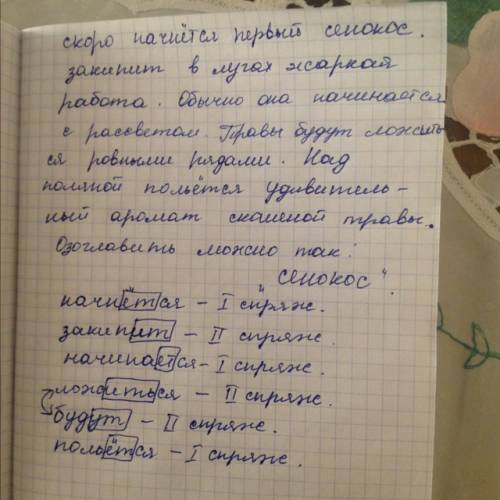 скоро начнётся первый сенокос.
закипит в лугах жаркая
работа. Обычно она начинается
с рассветом. Травы будут ложить
ся ровными рядами. Над
поляной польётся удивитель-
ный аромат скошеной травы.
Озоглавить можно так:
"Сенокос".
начнётся - I спряж.
закипит - II спряж.
начинается - I спряж.
ложиться - II спряж.
будут - II спряж.
польётся - I спряж.